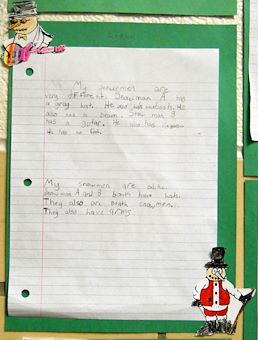 My snowmen are
very different. Snowman A has
a gray hat. He also has
also has a broom. Snow man B
has a guitar. He also has
He has no feet.
My snowmen are alike.
Snowman A and B both have hats.
They also are both snowmen.
They also have arms